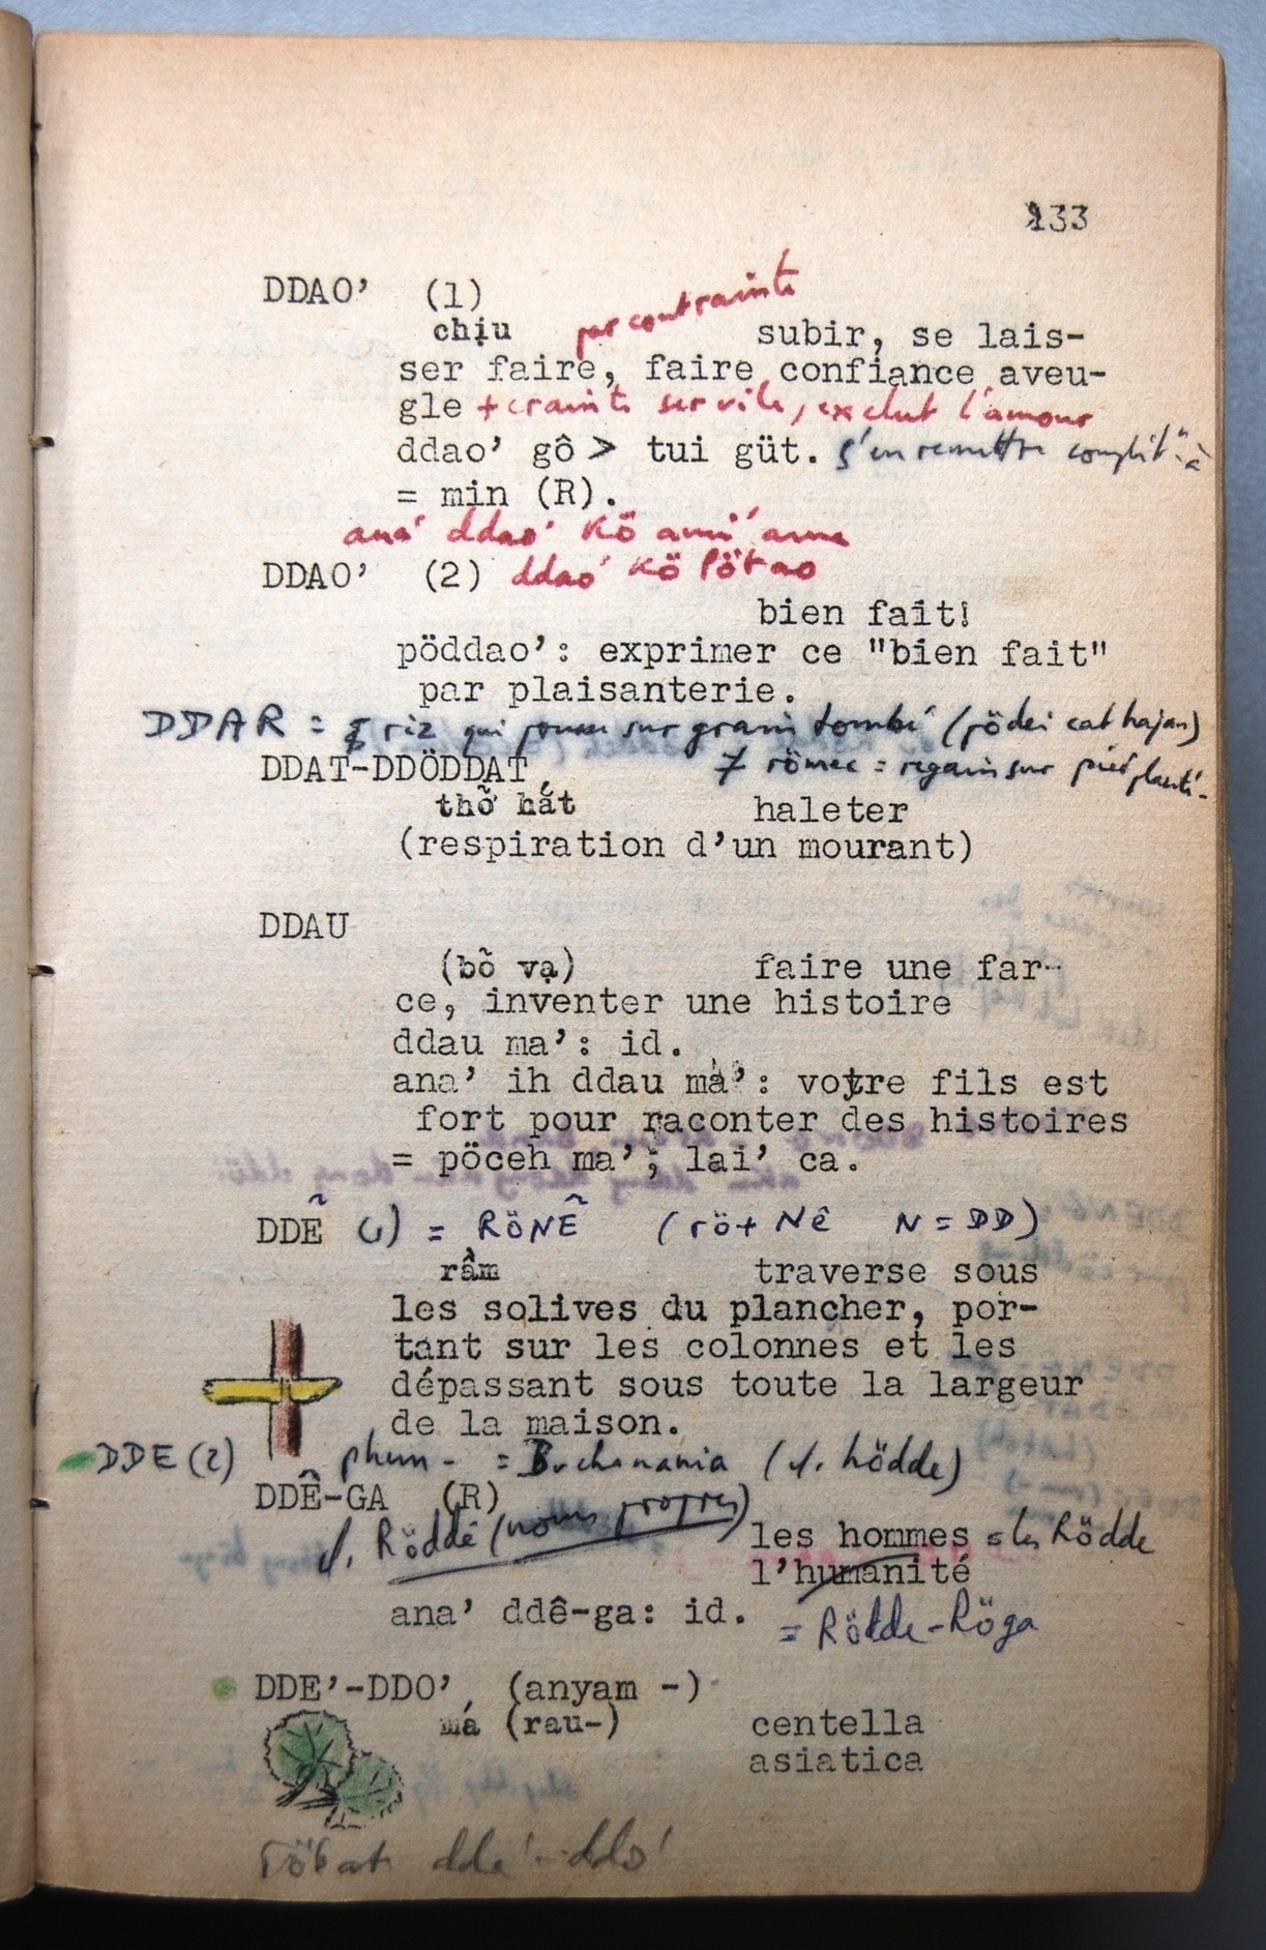 133
DDAO’ (1)
par contrainte
chịu subir, se lais-
ser faire, faire confiance aveu-
gle + crainte servile, exclut l'amour
ddao’ gô > tui güt. s'en remettre complètt à
= min (R).
ana' ddao' kö ami ama
DDAO’ (2) ddao' kö pötao
bien fait!
pöddao’: exprimer ce "bien fait"
par plaisanterie.
DDAR = riz qui pousse sur grain tombé (pödei cat hajan)
DDAT-DDÖDDAT ≠ römec = regain sur pied planté.
thở hắt haleter
(respiration d’un mourant)
DDAU
(bõ vạ) faire une far-
ce, inventer une histoire
ddau ma’: id.
ana’ ih ddau mà’: votre fils est
fort pour raconter des histoires
= pöceh ma’; lai’ ca.
DDỄ (1) = RÖNỄ (rö + Nê N = DD)
rầm traverse sous
les solives du plancher, por-
tant sur les colonnes et les
dépassant sous toute la largeur
de la maison.
DDE (2) phun - = Buchanania (v. hödde)
DDÊ-GA (R)
v. Röddê (noms propres)
les hommes = les Rödde
l’humanité
ana’ ddê-ga: id. = Rödde-Röga
DDE’-DDO’ (anyam -)
má (rau-) centella
asiatica
röbat dde'-ddo'